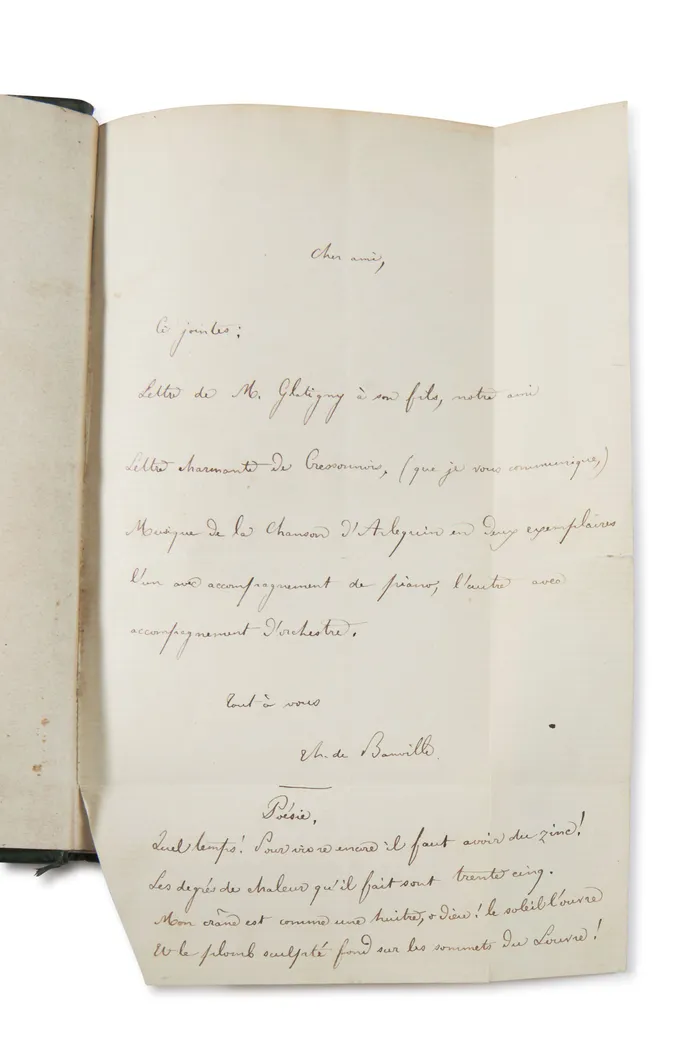 Cher ami,
Ci jointes :
Lettre de M. Glatigny à son fils, notre ami
Lettre charmante de Cressonnois, (que je vous communique,)
Musique de la Chanson d'Arlequin en deux exemplaires
l'un avec accompagnement de piano, l'autre avec
accompagnement d'orchestre.
tout à vous
Th. de Banville
Poésie.
Quel temps ! Pour vivre encore il faut avoir du zinc !
Les degrés de chaleur qu'il fait sont trente cinq.
Mon crâne est comme une huitre, o dieu ! le soleil l'ouvre
Et le plomb sculpté fond sur les sommets du Louvre !